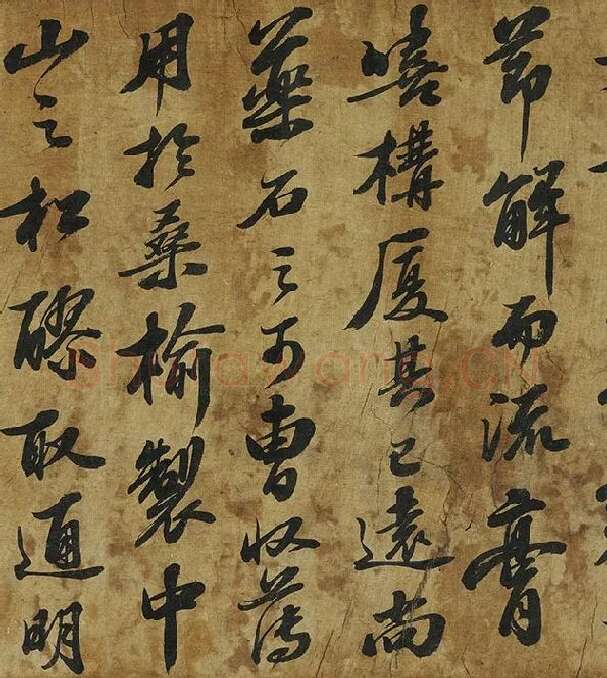 節解而流膏
嘻構厦其已遠尚
藥石之可曹收薄
用於桑榆製中
山之松醪取通明
shufawang.CN